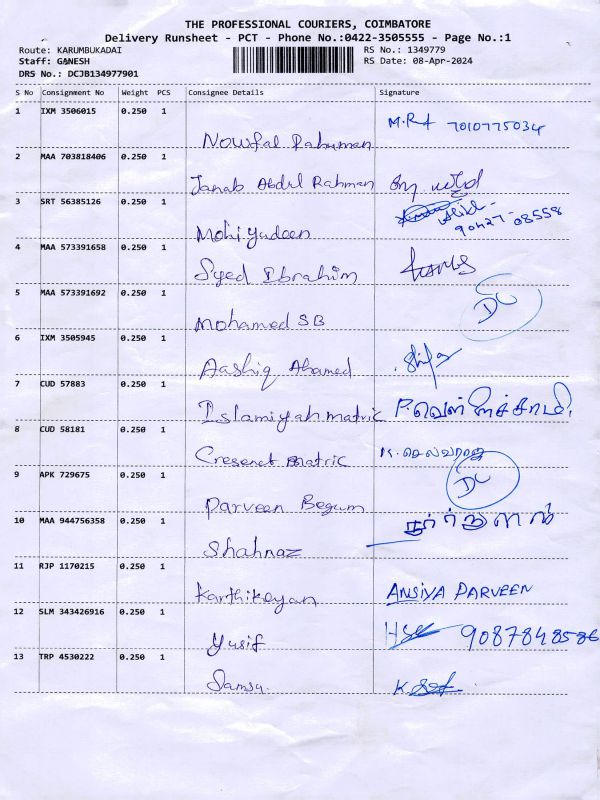 THE PROFESSIONAL COURIERS, COIMBATORE
Delivery Runsheet - PCT - Phone No.:0422-3505555 - Page No.:1
Route: KARUMBUKADAI RS No.: 1349779
Staff: GANESH RS Date: 08-Apr-2024
DRS No.: DCJB134977901
S No Consignment No Weight PCS Consignee Details Signature
1 IXM 3506015 0.250 1
Nowfal Rahuman M.R.A 7010775034
2 MAA 703818406 0.250 1
Janab Abdul Rahman
3 SRT 56385126 0.250 1
Mohiyudeen 90427-08558
4 MAA 573391658 0.250 1
Syed Ibrahim
5 MAA 573391692 0.250 1
Mohamed SB DC
6 IXM 3505945 0.250 1
Aashiq Ahamed Shifa
7 CUD 57883 0.250 1
Islamiyah matric P.வெள்ளைச்சாமி.
8 CUD 58181 0.250 1
Cresenct matric K. செல்வராஜ்
9 APK 729675 0.250 1
Parveen Begum DC
10 MAA 944756358 0.250 1
Shahnaz
11 RJP 1170215 0.250 1
Karthikeyan ANSIYA PARVEEN
12 SLM 343426916 0.250 1
Yusif 9087848586
13 TRP 4530222 0.250 1
Samsu